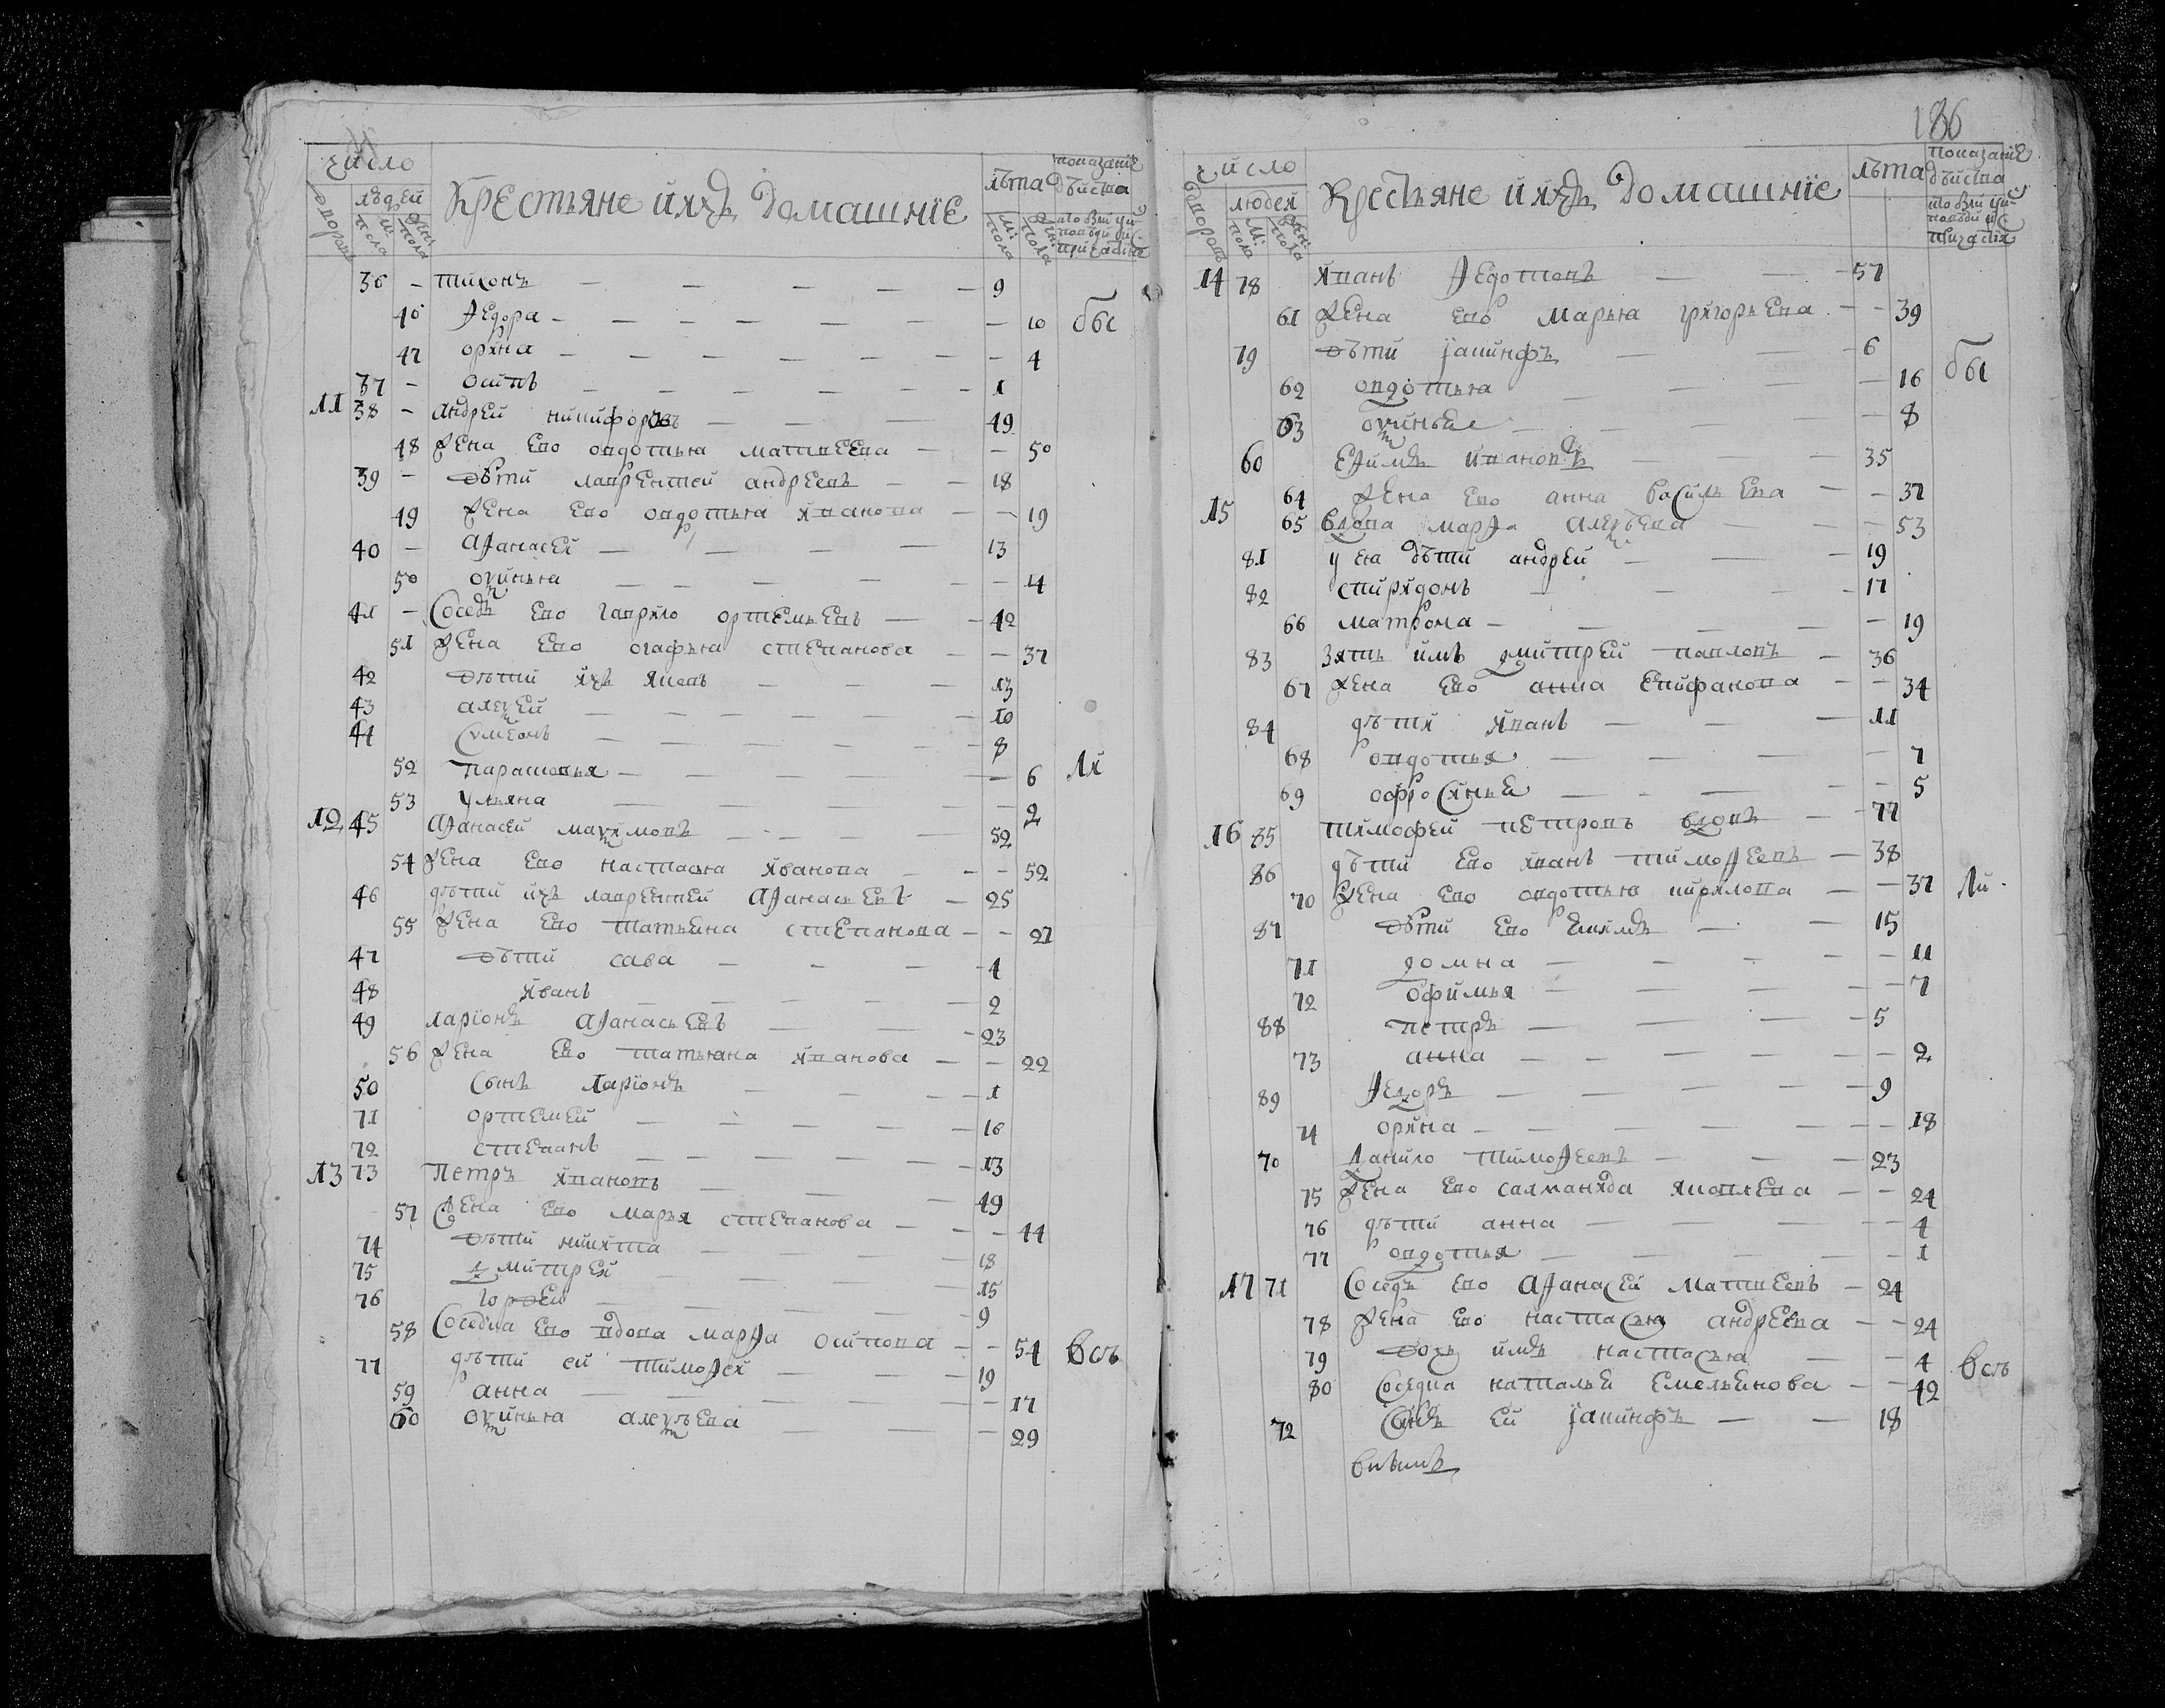 число
Крестьяне и ихъ домашние
лѣта
показание
дѣйства
дворовъ
людей
м: пола
жен: пола
м: пола
жен: пола
кто былъ у исповѣди и с: причастия
36 – тихонъ — 9
46 Федора — 10 бы
47 орина — 4
37 – осипъ — 1
11 38 – андрей никифоровъ — 49
48 жена ево овдотья матвеева — 50
39 – дѣти лаврентей андреевъ — 18
49 жена ево овдотья иванова — 19
40 – аѳанасей — 13
50 оксинья — 4
41 – Соседъ ево гаврило ортемьевъ — 42
51 жена ево огафья степанова — 37
42 дѣти ихъ яковъ — 13
43 алексей — 10
44 Сумеонъ — 8
52 парасковья — 6 ли
53 ульяна — 2
12 45 аѳанасей максимовъ — 52
54 жена ево настасья иванова — 52
46 дѣти ихъ лаврентей аѳанасьевъ — 25
55 жена ево татьяна степанова — 27
47 дѣти сава — 4
48 иванъ — 2
49 ларионъ аѳанасьевъ — 23
56 жена ево татьяна иванова — 22
50 Сынъ ларионъ — 1
71 ортемей — 16
72 степанъ — 13
13 73 петръ ивановъ — 49
57 жена ево марья степанова — 44
74 дѣти никита — 18
75 дмитрей — 15
76 гордей — 9
58 Соседка ево вдова марѳа осипова — 54 всѣ
77 дѣти ей тимоѳей — 19
59 анна — 17
60 оксинья алексѣева — 29
186
число
Крестьяне и ихъ домашние
лѣта
показание
дѣйства
дворовъ
людей
м: пола
жен: пола
кто былъ у исповѣди и с: причастия
14 78 иванъ Ѳедотовъ — 57
61 жена ево марья григорьева — 39
79 дѣти iакинфъ — 6 бы
62 овдотья — 16
63 оксинья — 8
60 еѳимъ ивановъ — 35
64 жена ево анна васильева — 37
15 65 вдова марѳа алексѣева — 53
81 у ея дѣти андрей — 19
82 спиридонъ — 17
66 матрона — 19
83 зять имъ дмитрей павловъ — 36
67 жена ево анна епифанова — 34
84 дѣти иванъ — 11
68 овдотья — 7
69 офросинья — 5
16 85 тимофей петровъ вдовъ — 77
86 дѣти ево иванъ тимоѳеевъ — 38
70 жена ево овдотья кирилова — 37 ли
87 дѣти ево екимъ — 15
71 домна — 11
72 офимья — 7
88 петръ — 5
73 анна — 2
89 Ѳедоръ — 9
74 орина — 18
70 данило тимоѳеевъ — 23
75 жена ево саломанида яковлева — 24
76 дѣти анна — 4
77 овдотья — 1
17 71 Соседъ ево аѳанасей матвеевъ — 24
78 жена ево настасья андреева — 24
79 дочь имъ настасья — 4 всѣ
80 Соседка наталья емельянова — 42
72 Сынъ ей iакинфъ — 18